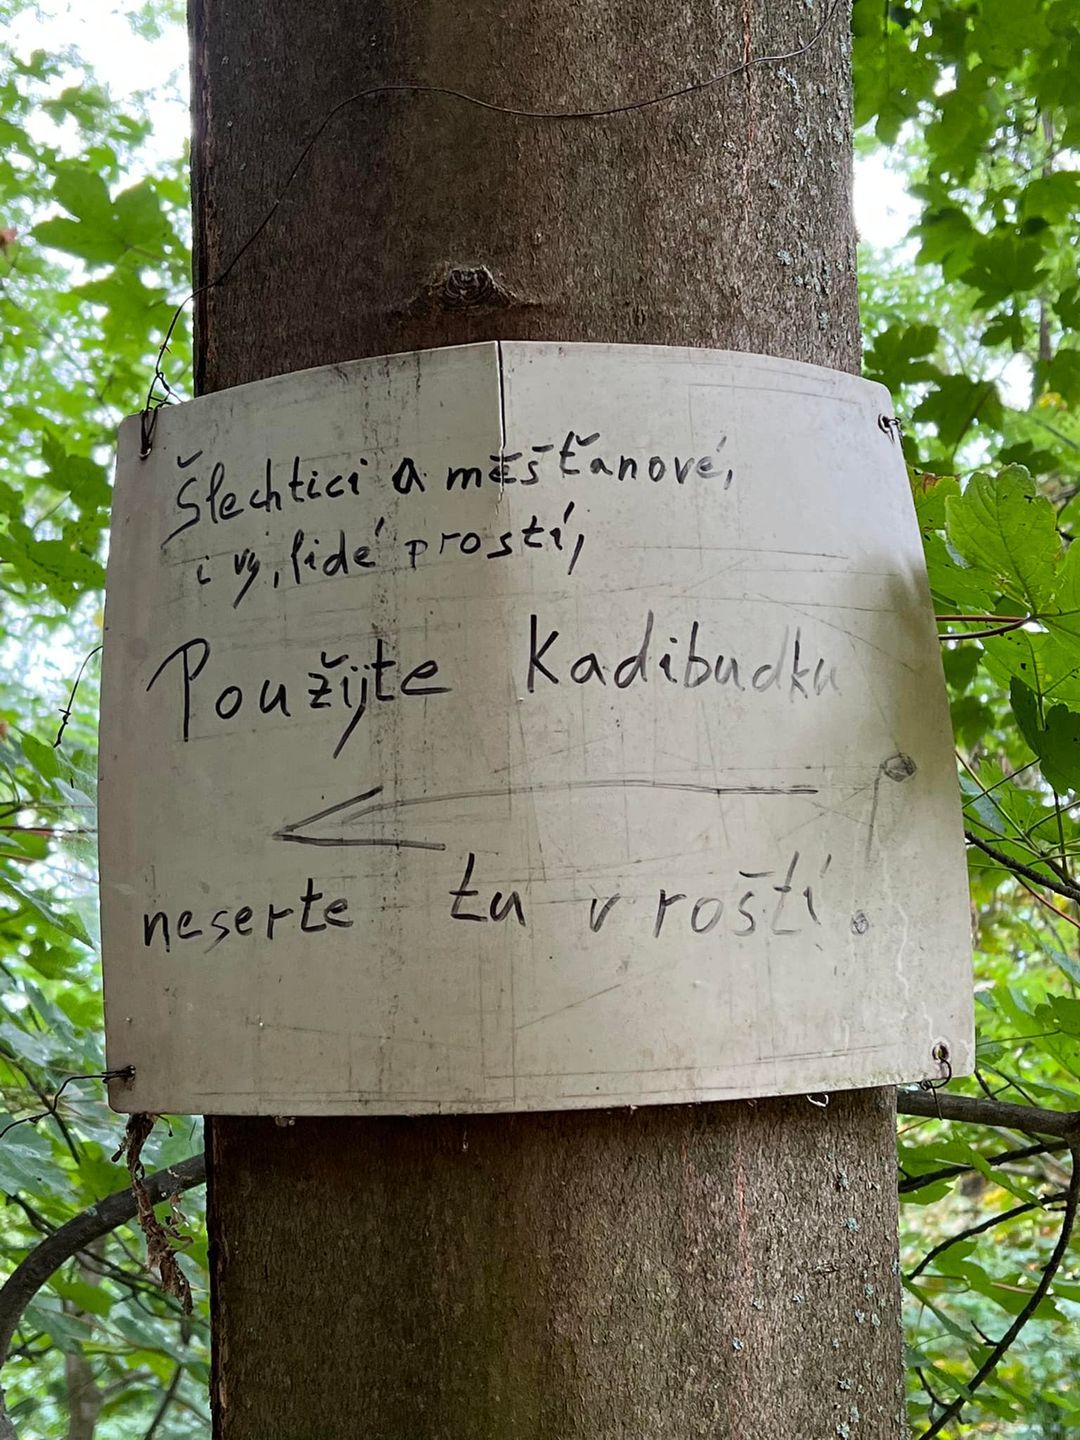 Šlechtici a měšťanové,
i vy, lidé prostí,
Použijte Kadibudku
neserte tu v roští.